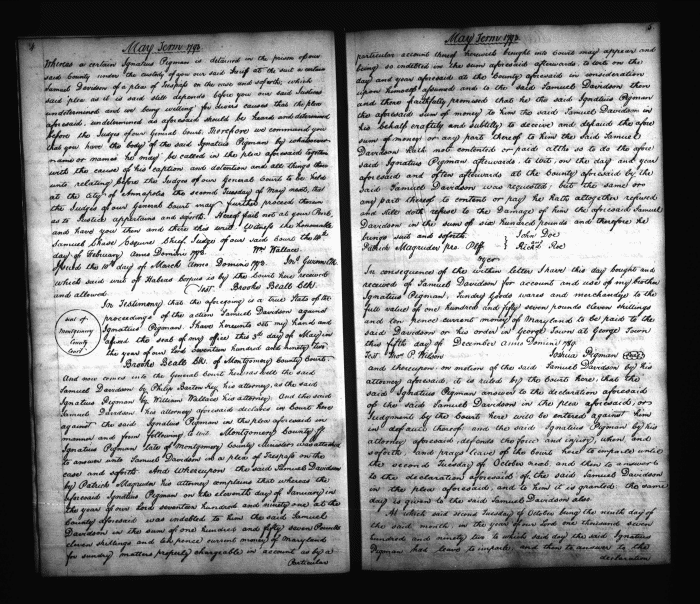 4
May Term 1792
Whereas a certain Ignatius Pigman is detained in the prison of our
said County under the custody of you our said Sheriff at the suit a certain
Samuel Davidson of a plea of Trespass on the case and soforth; which
said plea as it is said still depends before you our said Justices
undetermined and we being willing for divers causes that the plea
aforesaid, undetermined as aforesaid should be heard and determined
before the Judges of our General Court. Therefore we command you
that you have the body of the said Ignatius Pigman by whatsoever
name or names he may be called in the plea aforesaid together
with the cause of his caption and detention and all things there
unto relating before the Judges of our General Court to be held
at the City of Annapolis the second Tuesday of May next, that
the Judges of our General Court may further proceed therein
as to Justice appertains and soforth. Hereof fail not at your Peril,
and have you then and there this writ. Witness the honorable
Samuel Chase Esquire Chief Judge of our said Court the 10th
day of February Anno Domini 1792. Wm Wallace.
Issued the 10th day of March Anno Domini 1792. Jno Gwinn Clk
which said writ of Habeas corpus is by the Court here received
and allowed. Test. Brooke Beall Clk.
In Testimony that the aforegoing is a true State of the
proceedings of the action Samuel Davidson against
Ignatius Pigman. I have hereunto set my hand and
affixed the seal of my office this 3d day of May in
the year of our Lord seventeen hundred and ninety two.
Seal of
Montgomery
County
Court
Brooke Beall Clk of Montgomery County Court.
And now comes into the General Court here as well the said
Samuel Davidson by Philip Barton Key his attorney, as the said
Ignatius Pigman by William Wallace his attorney. And the said
Samuel Davidson by his attorney aforesaid declares in Court here
against the said Ignatius Pigman in the plea aforesaid in
manner and form following to wit Montgomery County ss
Ignatius Pigman late of Montgomery County was attached
to answer unto Samuel Davidson of a plea of Trespass on the
case and soforth. And Whereupon the said Samuel Davidson
by Patrick Magruder his attorney complains that whereas the
aforesaid Ignatius Pigman on the eleventh day of January in
the year of our Lord seventeen hundred and ninety one at the
County aforesaid was indebted to him the said Samuel
Davidson in the sum of one hundred and fifty seven Pounds
eleven shillings and ten pence current money of Maryland
for sundry matters properly chargeable in account as by a
Particular
5
May Term 1792
particular account thereof herewith brought into Court may appear and
being so indebted in the sum aforesaid afterwards, to wit on the
day and year aforesaid at the County aforesaid in consideration
upon himself assumed and to the said Samuel Davidson then
and there faithfully promised that he the said Ignatius Pigman
the aforesaid sum of money to him the said Samuel Davidson in
his behalf craftily and subtilly to deceive and defraud the afore
sum of money or any part thereof to him the said Samuel
Davidson hath not contented or paid altho so to do the afore
said Ignatius Pigman afterwards, to wit, on the day and year
aforesaid and often afterwards at the County aforesaid by the
said Samuel Davidson was requested; but the same or
any part thereof to content or pay he hath altogether refused
and still doth refuse to the Damage of him the aforesaid Samuel
Davidson in the sum of six hundred pounds and therefore he
brings suit and soforth. John Doe
Patrick Magruder pro. Plff. Richd Roe
oyer
In consequence of the within letter I have this day bought and
received of Samuel Davidson for account and use of my brother
Ignatius Pigman, Sundry Goods wares and merchandize to the
full value of one hundred and fifty seven pounds eleven shillings
and ten pence current money of Maryland to be paid to the
said Davidson or his order in George Town at George Town
this fifth day of December Anno Domini 1789.
Test. Thos P. Wilson Joshua Pigman
and thereupon on motion of the said Samuel Davidson by his
attorney aforesaid, it is ruled by the Court here, that the
said Ignatius Pigman answer to the declaration aforesaid
of the said Samuel Davidson in the plea aforesaid; or
Judgment by the Court here will be entered against him
in default thereof and the said Ignatius Pigman by his
attorney aforesaid, defends the force and injury, when and
soforth, and prays leave of the Court here to imparle until
the second Tuesday of October next and then to answer to
the declaration aforesaid of the said Samuel Davidson
in the plea aforesaid, and to him it is granted; the same
day is given to the said Samuel Davidson also.
At which said second Tuesday of October being the ninth day of
the said month, in the year of our Lord one thousand seven
hundred and ninety two to which said day the said Ignatius
Pigman had leave to imparle and then to answer to the
declaration